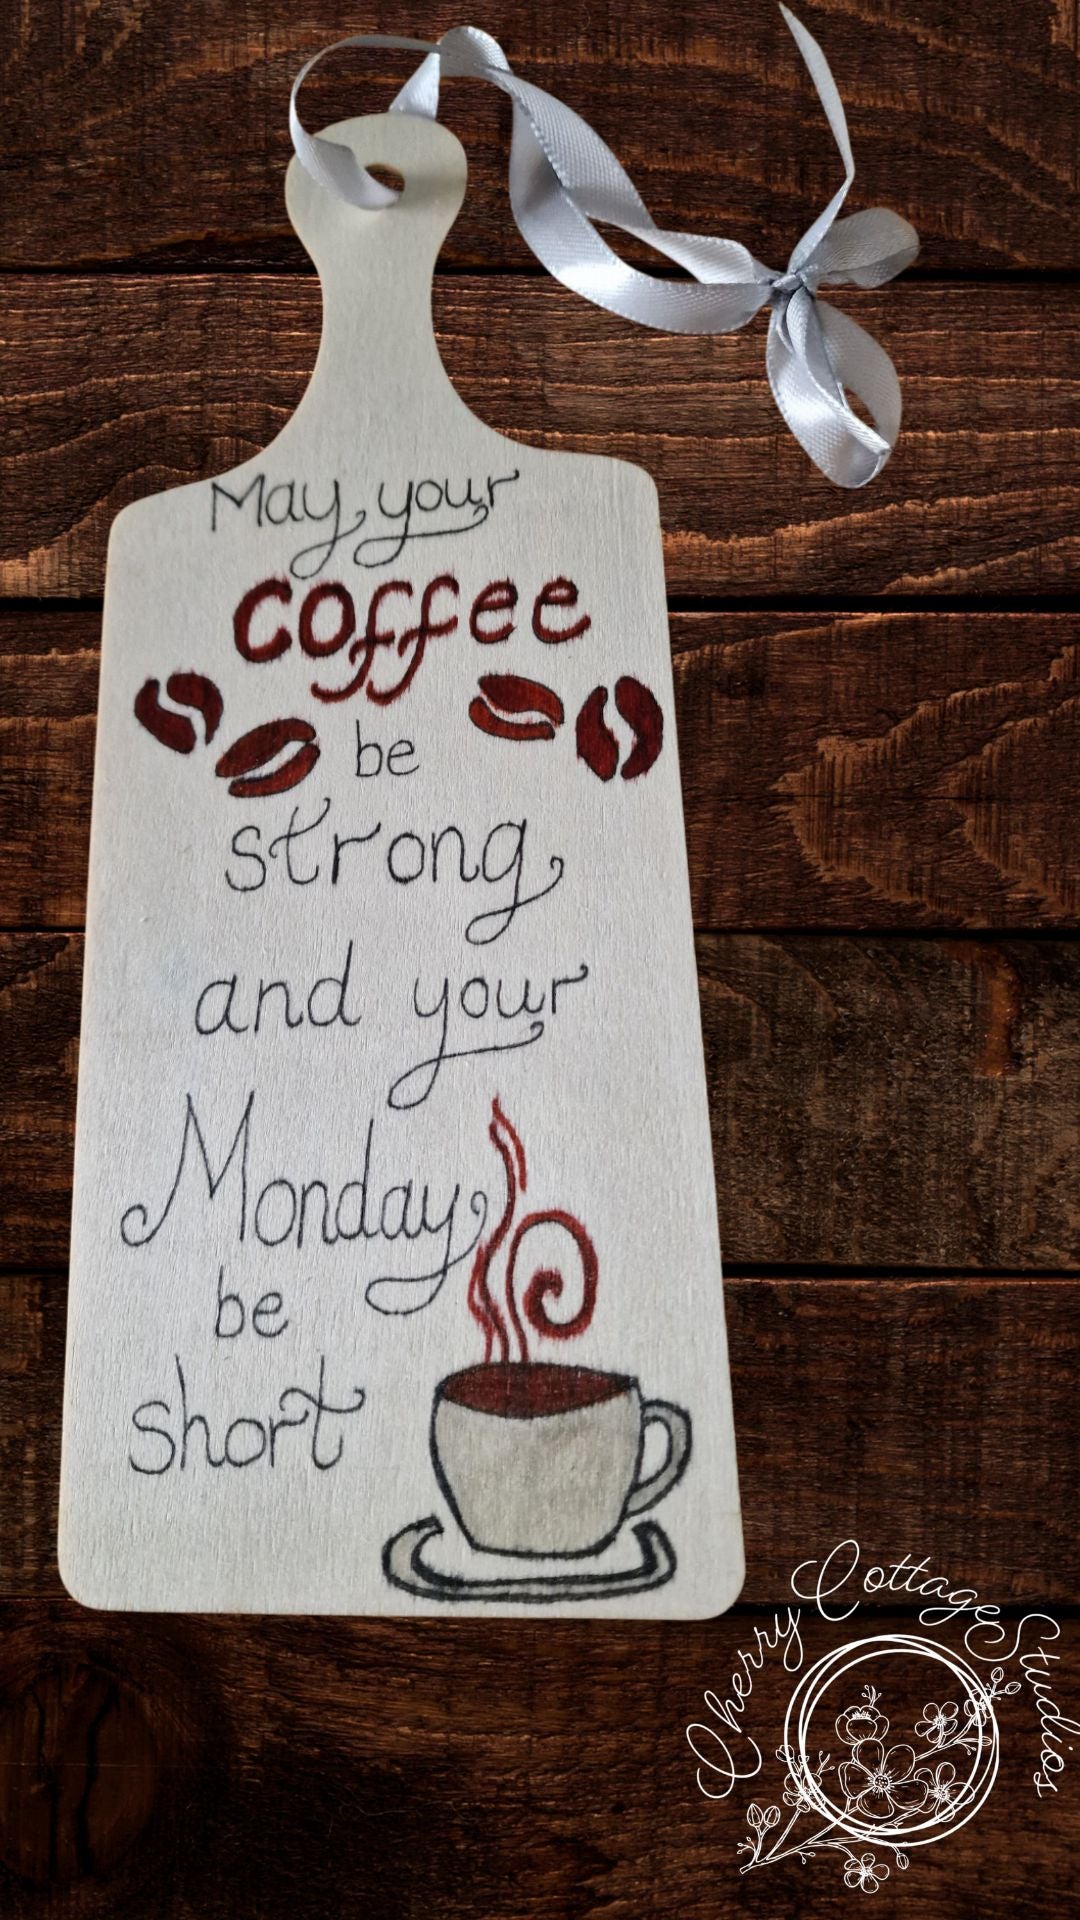 May your
coffee
be
strong
and your
Monday
be
short
Cherry Cottage Studios